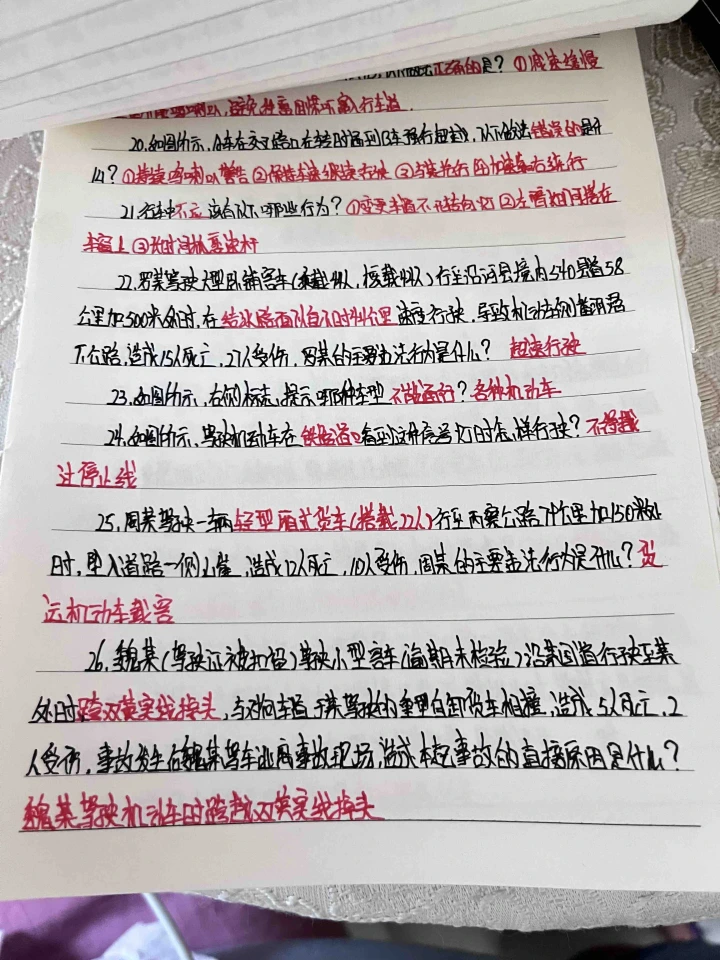 正确的是？①减速缓慢
避免投离 行车道.
20.如图所示,A车在交叉路口左转时遇到B车强行超越,以下做法错误的是什
么？①持续鸣喇叭警告②保持车速继续行驶③与其并行④加速靠右绕行
21.行车中不应该有以下哪些行为？①变更车道不开转向灯②左臂长时间搭在
车窗上③长时间抓变速杆
22.罗某驾驶大型卧铺客车(乘载44人,核载44人)行至沿河县境内540县道58
公里加500米处时,在结冰路面以44公里速度行驶,导致机动车侧翻翻
下公路,造成15人死亡,27人受伤,罗某的主要违法行为是什么？ 超速行驶
23.如图所示,右侧标志,提示哪种车型不能通行？各种机动车
24.如图所示,驾驶机动车在铁路道口看到这种信号灯时怎样行驶？不得越
过停止线
25.周某驾驶一辆轻型厢式货车(搭载22人)行至丙察公路79公里加150米处
时,坠入道路一侧山崖,造成12人死亡,10人受伤,周某的主要违法行为是什么？货
运机动车载客
26.魏某(驾驶证被扣留)驾驶小型客车(逾期未检验)沿某国道行驶至某
处时跨双黄实线掉头,与对向车道于某驾驶的重型自卸货车相撞,造成5人死亡,2
人受伤,事故发生后魏某驾车逃离事故现场,造成本起事故的直接原因是什么？
魏某驾驶机动车时跨越双黄实线掉头